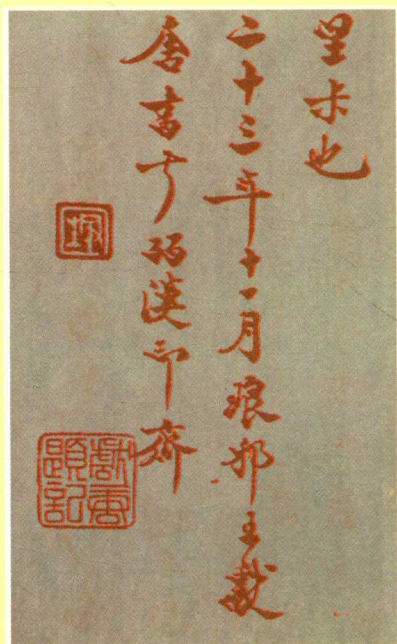 也
二十三年十一月琅邪王獻
唐書于兩漢印齋
獻唐題記